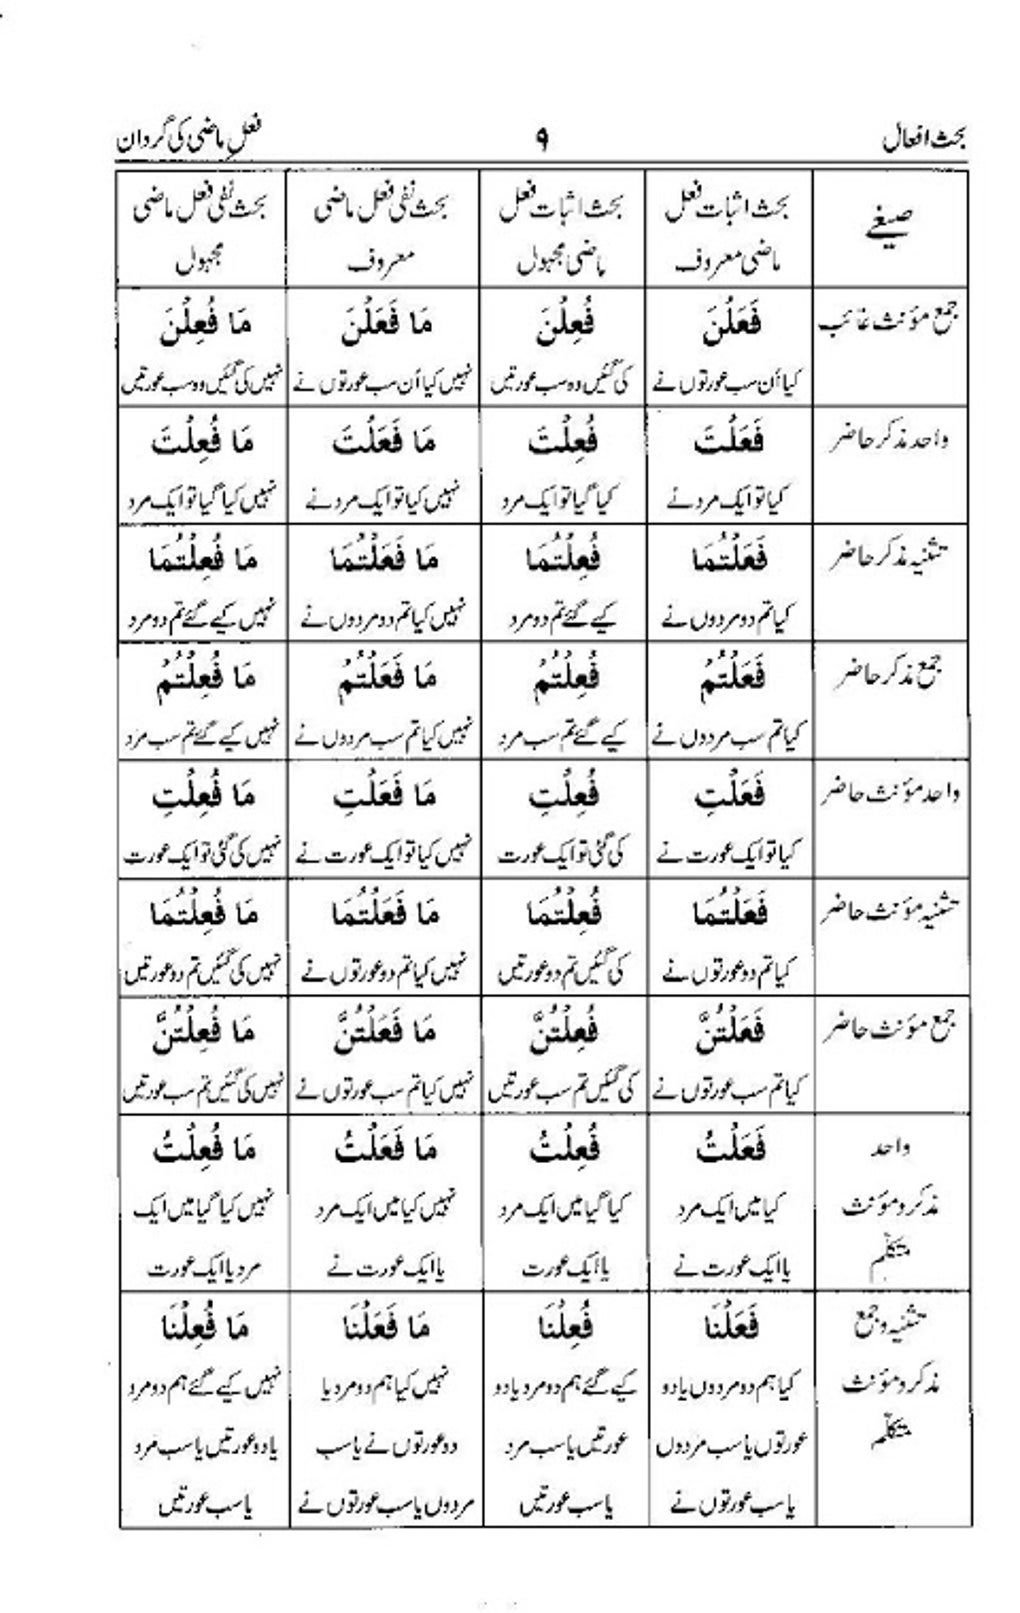 بحث افعال ۹ فعلِ ماضی کی گردان
صیغے بحث اثبات فعل بحث اثبات فعل بحث نفی فعل ماضی بحث نفی فعل ماضی
ماضی معروف ماضی مجہول معروف مجہول
جمع مؤنث غائب فَعَلْنَ فُعِلْنَ مَا فَعَلْنَ مَا فُعِلْنَ
کیا اُن سب عورتوں نے کی گئیں وہ سب عورتیں نہیں کیا اُن سب عورتوں نے نہیں کی گئیں وہ سب عورتیں
واحد مذکر حاضر فَعَلْتَ فُعِلْتَ مَا فَعَلْتَ مَا فُعِلْتَ
کیا تو ایک مرد نے کیا گیا تو ایک مرد نہیں کیا تو ایک مرد نے نہیں کیا گیا تو ایک مرد
تثنیہ مذکر حاضر فَعَلْتُمَا فُعِلْتُمَا مَا فَعَلْتُمَا مَا فُعِلْتُمَا
کیا تم دو مردوں نے کیے گئے تم دو مرد نہیں کیا تم دو مردوں نے نہیں کیے گئے تم دو مرد
جمع مذکر حاضر فَعَلْتُمْ فُعِلْتُمْ مَا فَعَلْتُمْ مَا فُعِلْتُمْ
کیا تم سب مردوں نے کیے گئے تم سب مرد نہیں کیا تم سب مردوں نے نہیں کیے گئے تم سب مرد
واحد مؤنث حاضر فَعَلْتِ فُعِلْتِ مَا فَعَلْتِ مَا فُعِلْتِ
کیا تو ایک عورت نے کی گئی تو ایک عورت نہیں کیا تو ایک عورت نے نہیں کی گئی تو ایک عورت
تثنیہ مؤنث حاضر فَعَلْتُمَا فُعِلْتُمَا مَا فَعَلْتُمَا مَا فُعِلْتُمَا
کیا تم دو عورتوں نے کی گئیں تم دو عورتیں نہیں کیا تم دو عورتوں نے نہیں کی گئیں تم دو عورتیں
جمع مؤنث حاضر فَعَلْتُنَّ فُعِلْتُنَّ مَا فَعَلْتُنَّ مَا فُعِلْتُنَّ
کیا تم سب عورتوں نے کی گئیں تم سب عورتیں نہیں کیا تم سب عورتوں نے نہیں کی گئیں تم سب عورتیں
واحد فَعَلْتُ فُعِلْتُ مَا فَعَلْتُ مَا فُعِلْتُ
مذکر و مؤنث کیا میں ایک مرد کیا گیا میں ایک مرد نہیں کیا میں ایک مرد نہیں کیا گیا میں ایک
متکلّم یا ایک عورت نے یا ایک عورت یا ایک عورت نے مرد یا ایک عورت
تثنیہ و جمع فَعَلْنَا فُعِلْنَا مَا فَعَلْنَا مَا فُعِلْنَا
مذکر و مؤنث کیا ہم دو مردوں یا دو کیے گئے ہم دو مرد یا دو نہیں کیا ہم دو مرد یا نہیں کیے گئے ہم دو مرد
متکلّم عورتوں یا سب مردوں عورتیں یا سب مرد دو عورتوں نے یا سب یا دو عورتیں یا سب مرد
یا سب عورتوں نے یا سب عورتیں مردوں یا سب عورتوں نے یا سب عورتیں